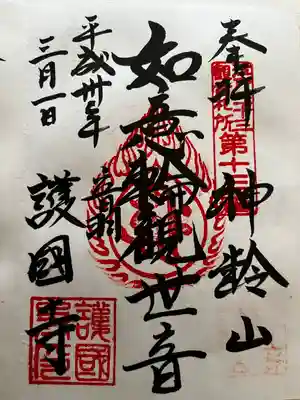 奉拝 神齢山
第十三
札所
如意輪観世音
音羽
護國寺
平成卅年
三月一日
護國